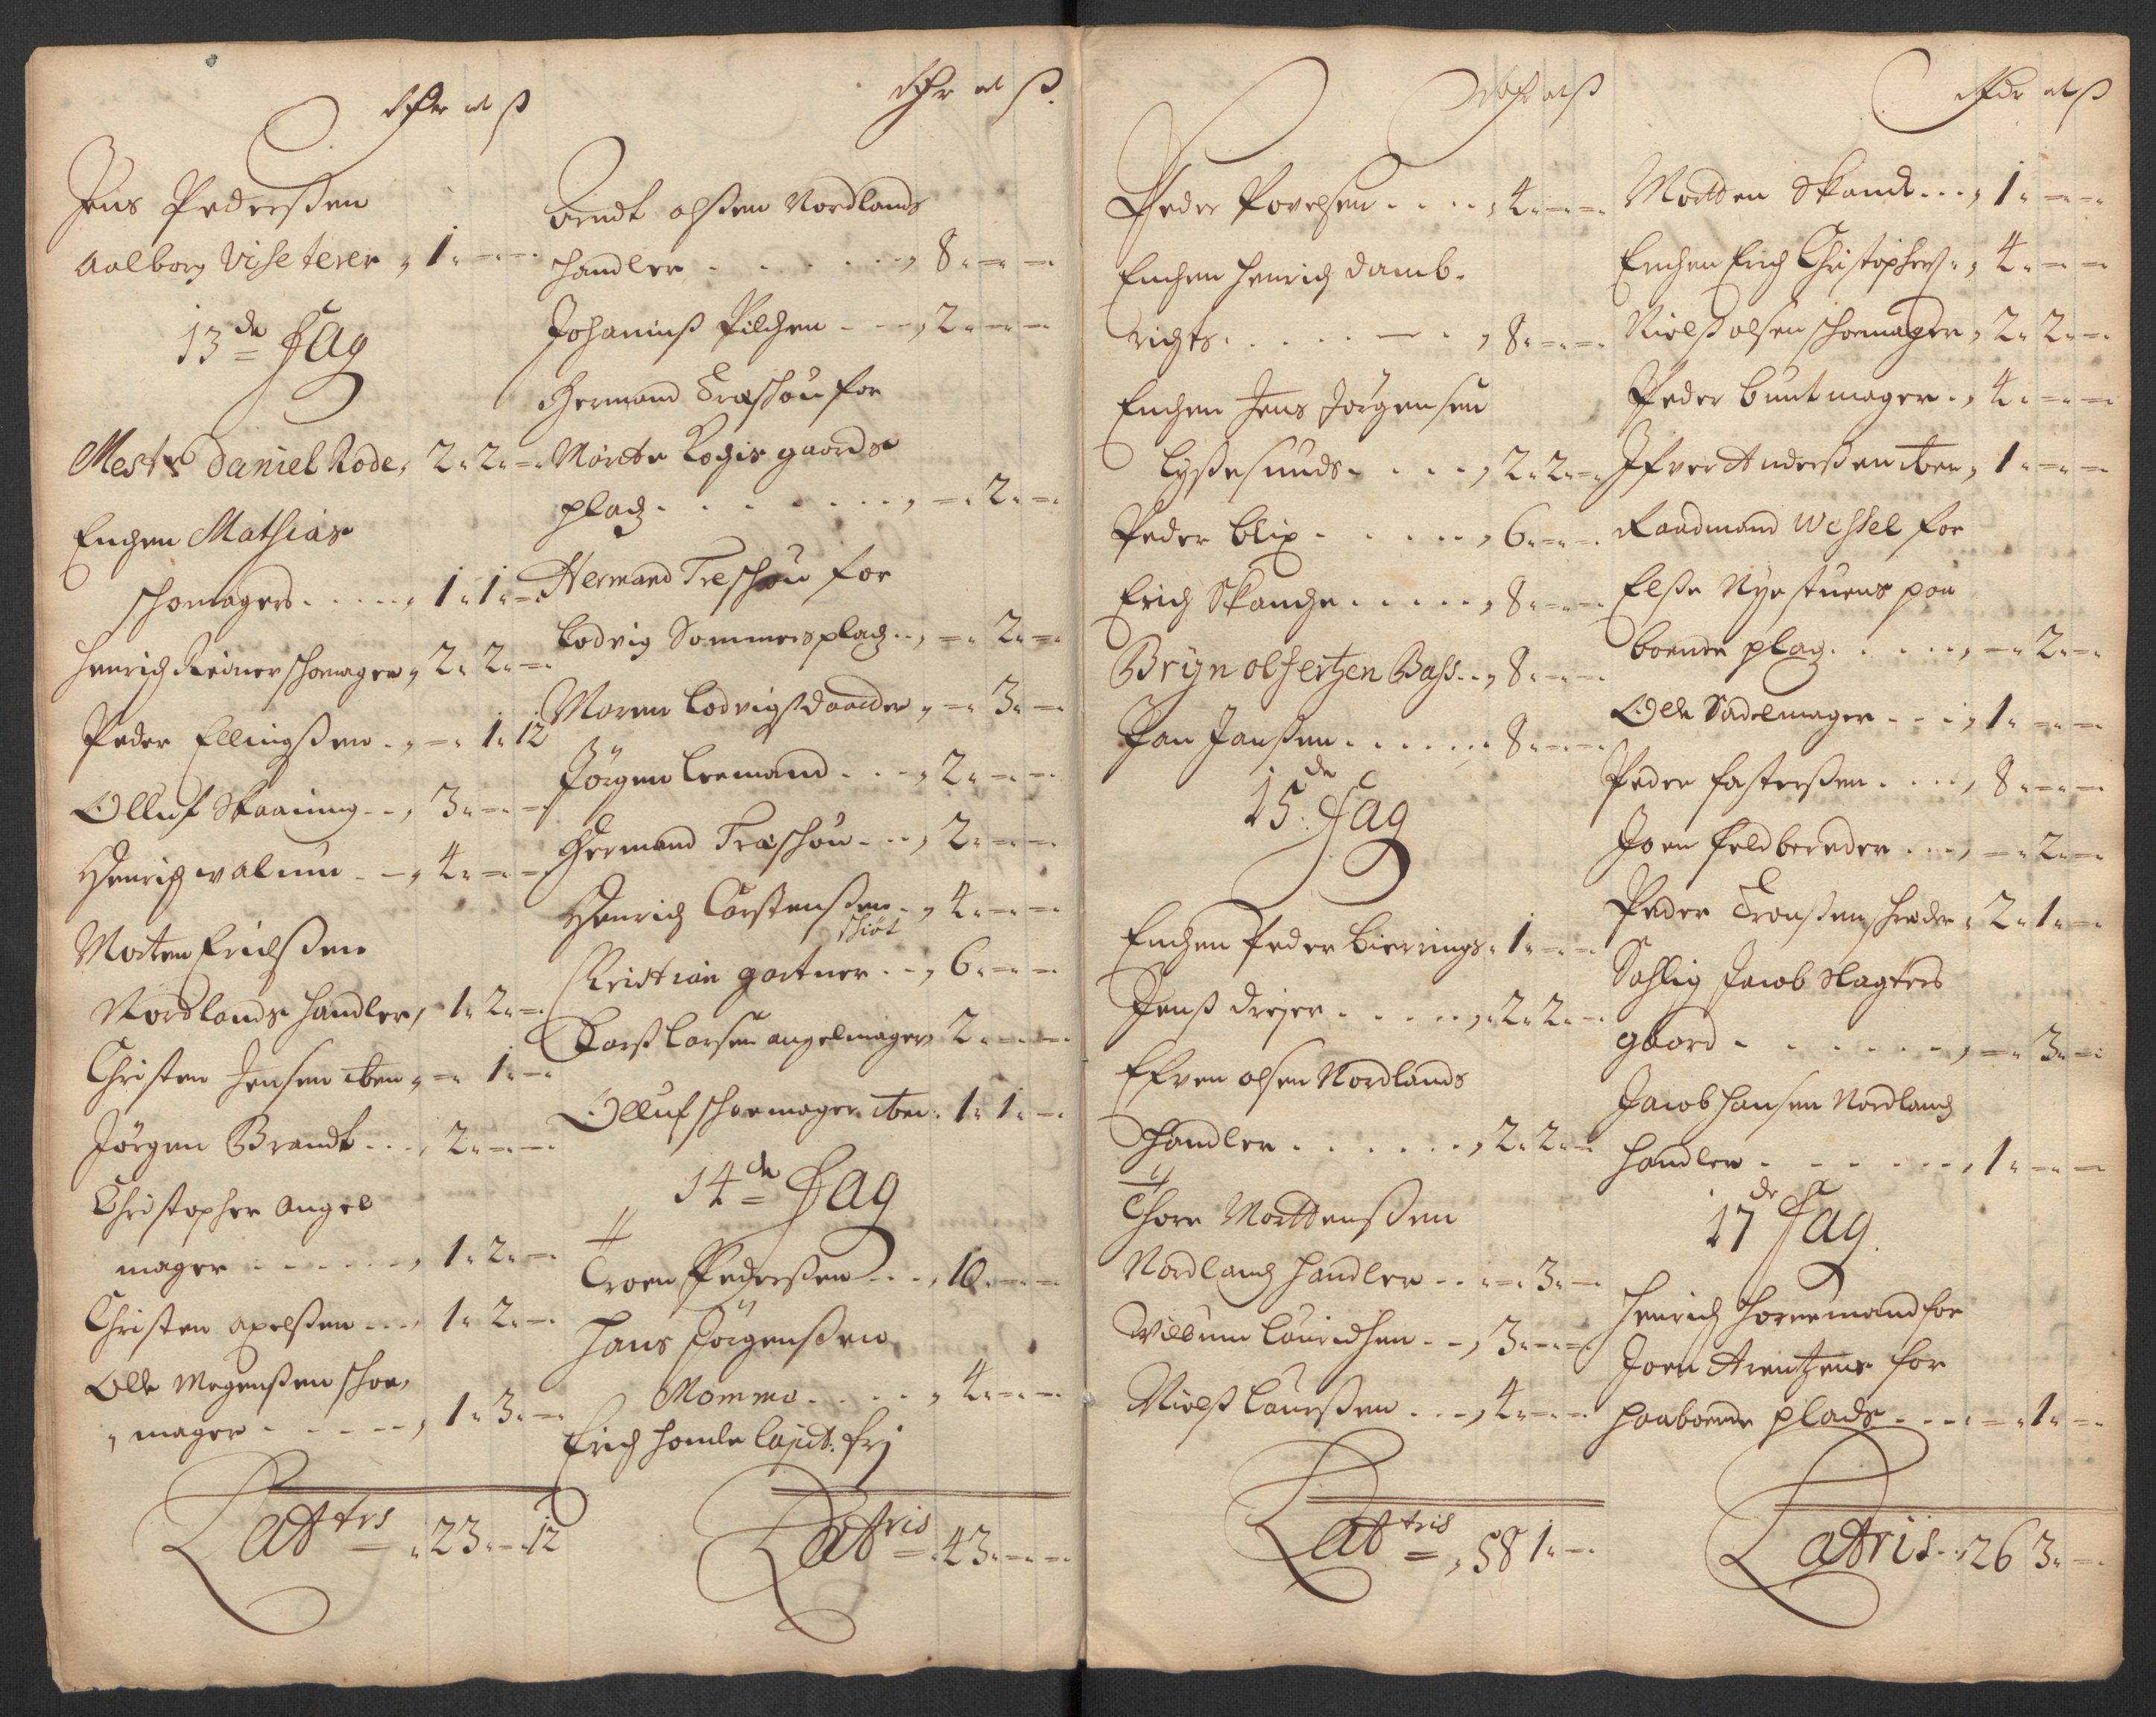 Rdr mk ß
Jens Pederßen
Aalborg Viseterer , 1 " – " –
13de Rag
Mestr Daniel Rode , 2 " 2 " –
Enchen Mathias
schomagers . . . . . , 1 " 1 " –
Henrich Reiner schomager , 2 " 2 " –
Peder Ellingßen . , – " 1 " 12
Olluf Skaaning . . , 3 " – " –
Henrich Walum . – , 4 " – " –
Morten Erichßen
Nordlands handler , 1 " 2 " –
Christen Jensen iben , – " 1 " –
Jörgen Brandt . . . , 2 " – " –
Christopher Angel
mager . . . . . . , 1 " 2 " –
Christen Axelßen . . . , 1 " 2 " –
Olle Mogenßen schoe,
, mager . . . . . , 1 " 3 " –
Lattris – " 23 " – " 12
Rdr mk ß
Arndt Olßen Nordlands
handler . . . . . . . , 8 " – " –
Johanneß Pilchen . . . , 2 " – " –
Hermand Træschou for
Morete Rochis gaards
platz . . . . . . . . , – " 2 " –
Hermand Treschou for
Lodvig Sommers platz . . , – " 2 " –
Maren Lodvigßdaatter , – " 3 " –
Jörgen Leemand . . . , 2 " – " –
Hermand Træschou . . . , 2 " – " –
Henrich Carstenßen . , 4 " – " –
schiöt
Christian gartner . . , 6 " – " –
Larß Larsen angelmager 2 " – " –
Olluf schoemager iben . 1 " 1 " –
14de Rag
Troen Pederßen . . . , 10 " – " –
Hans Jörgenßen
Mommo . . . . . , 4 " – " –
Erich Homle Capit: frj
Lattris – " 43 " – " –
Rdr mk ß
Peder Povelsen . . . . , 4 " – " –
Enchen Henrich Damb-
richts . . . . . – . , 8 " – " –
Enchen Jens Jörgensen
Lyßesunds . . . . , 2 " 2 " –
Peder Blix . . . . . , 6 " – " –
Erich Skanche . . . . . , 8 " – " –
Brÿnolf ertzen Bass . . , 8 " – " –
Jan Janßen . . . . . . . 8 " – " –
15de Rag
Enchen Peder Bierrings " 1 " – " –
Jenß Drejer . . . . . , 2 " 2 " –
Efven Olsen Nordlands
handler . . . . . . , 2 " 2 " –
Thore Mortenßen
Nordlantz handler . . . – " 3 " –
Willum Lauridsen . . , 3 " – " –
Nielß Laurßen . . . , 4 " – " –
Lattris – , 58 1 " –
Rdr mk ß
Morten Skanck . . . , 1 " – " –
Enchen Erich Christophers " , 4 " – " –
Nielß Olsen schoemager , 2 " 2 " –
Peder Buntmager . , 4 " – " –
Ifver Anderßen iben , 1 " – " –
Raadmand Wessel for
Elße Nyestuens paa
boende platz . . . . . , – " 2 " –
Olle Sadelmager . . . , 1 " – " –
Peder Fasterßen . . . . , 8 " – " –
Joen Feldbereder . . . , – " 2 " –
Peder Tronßen schreder " 2 " 1 " –
Sahlig Jacob Slagters
gaard . . . . . . . , – " 3 " –
Jacob Hansen Nordlantz
handler . . . . . . , 1 " – " –
17de Rag
Henrich Hornemand for
Joen Arentzens for
paaboende plads . . . . – " 1 " –
Lattris . . , 26 3 " –